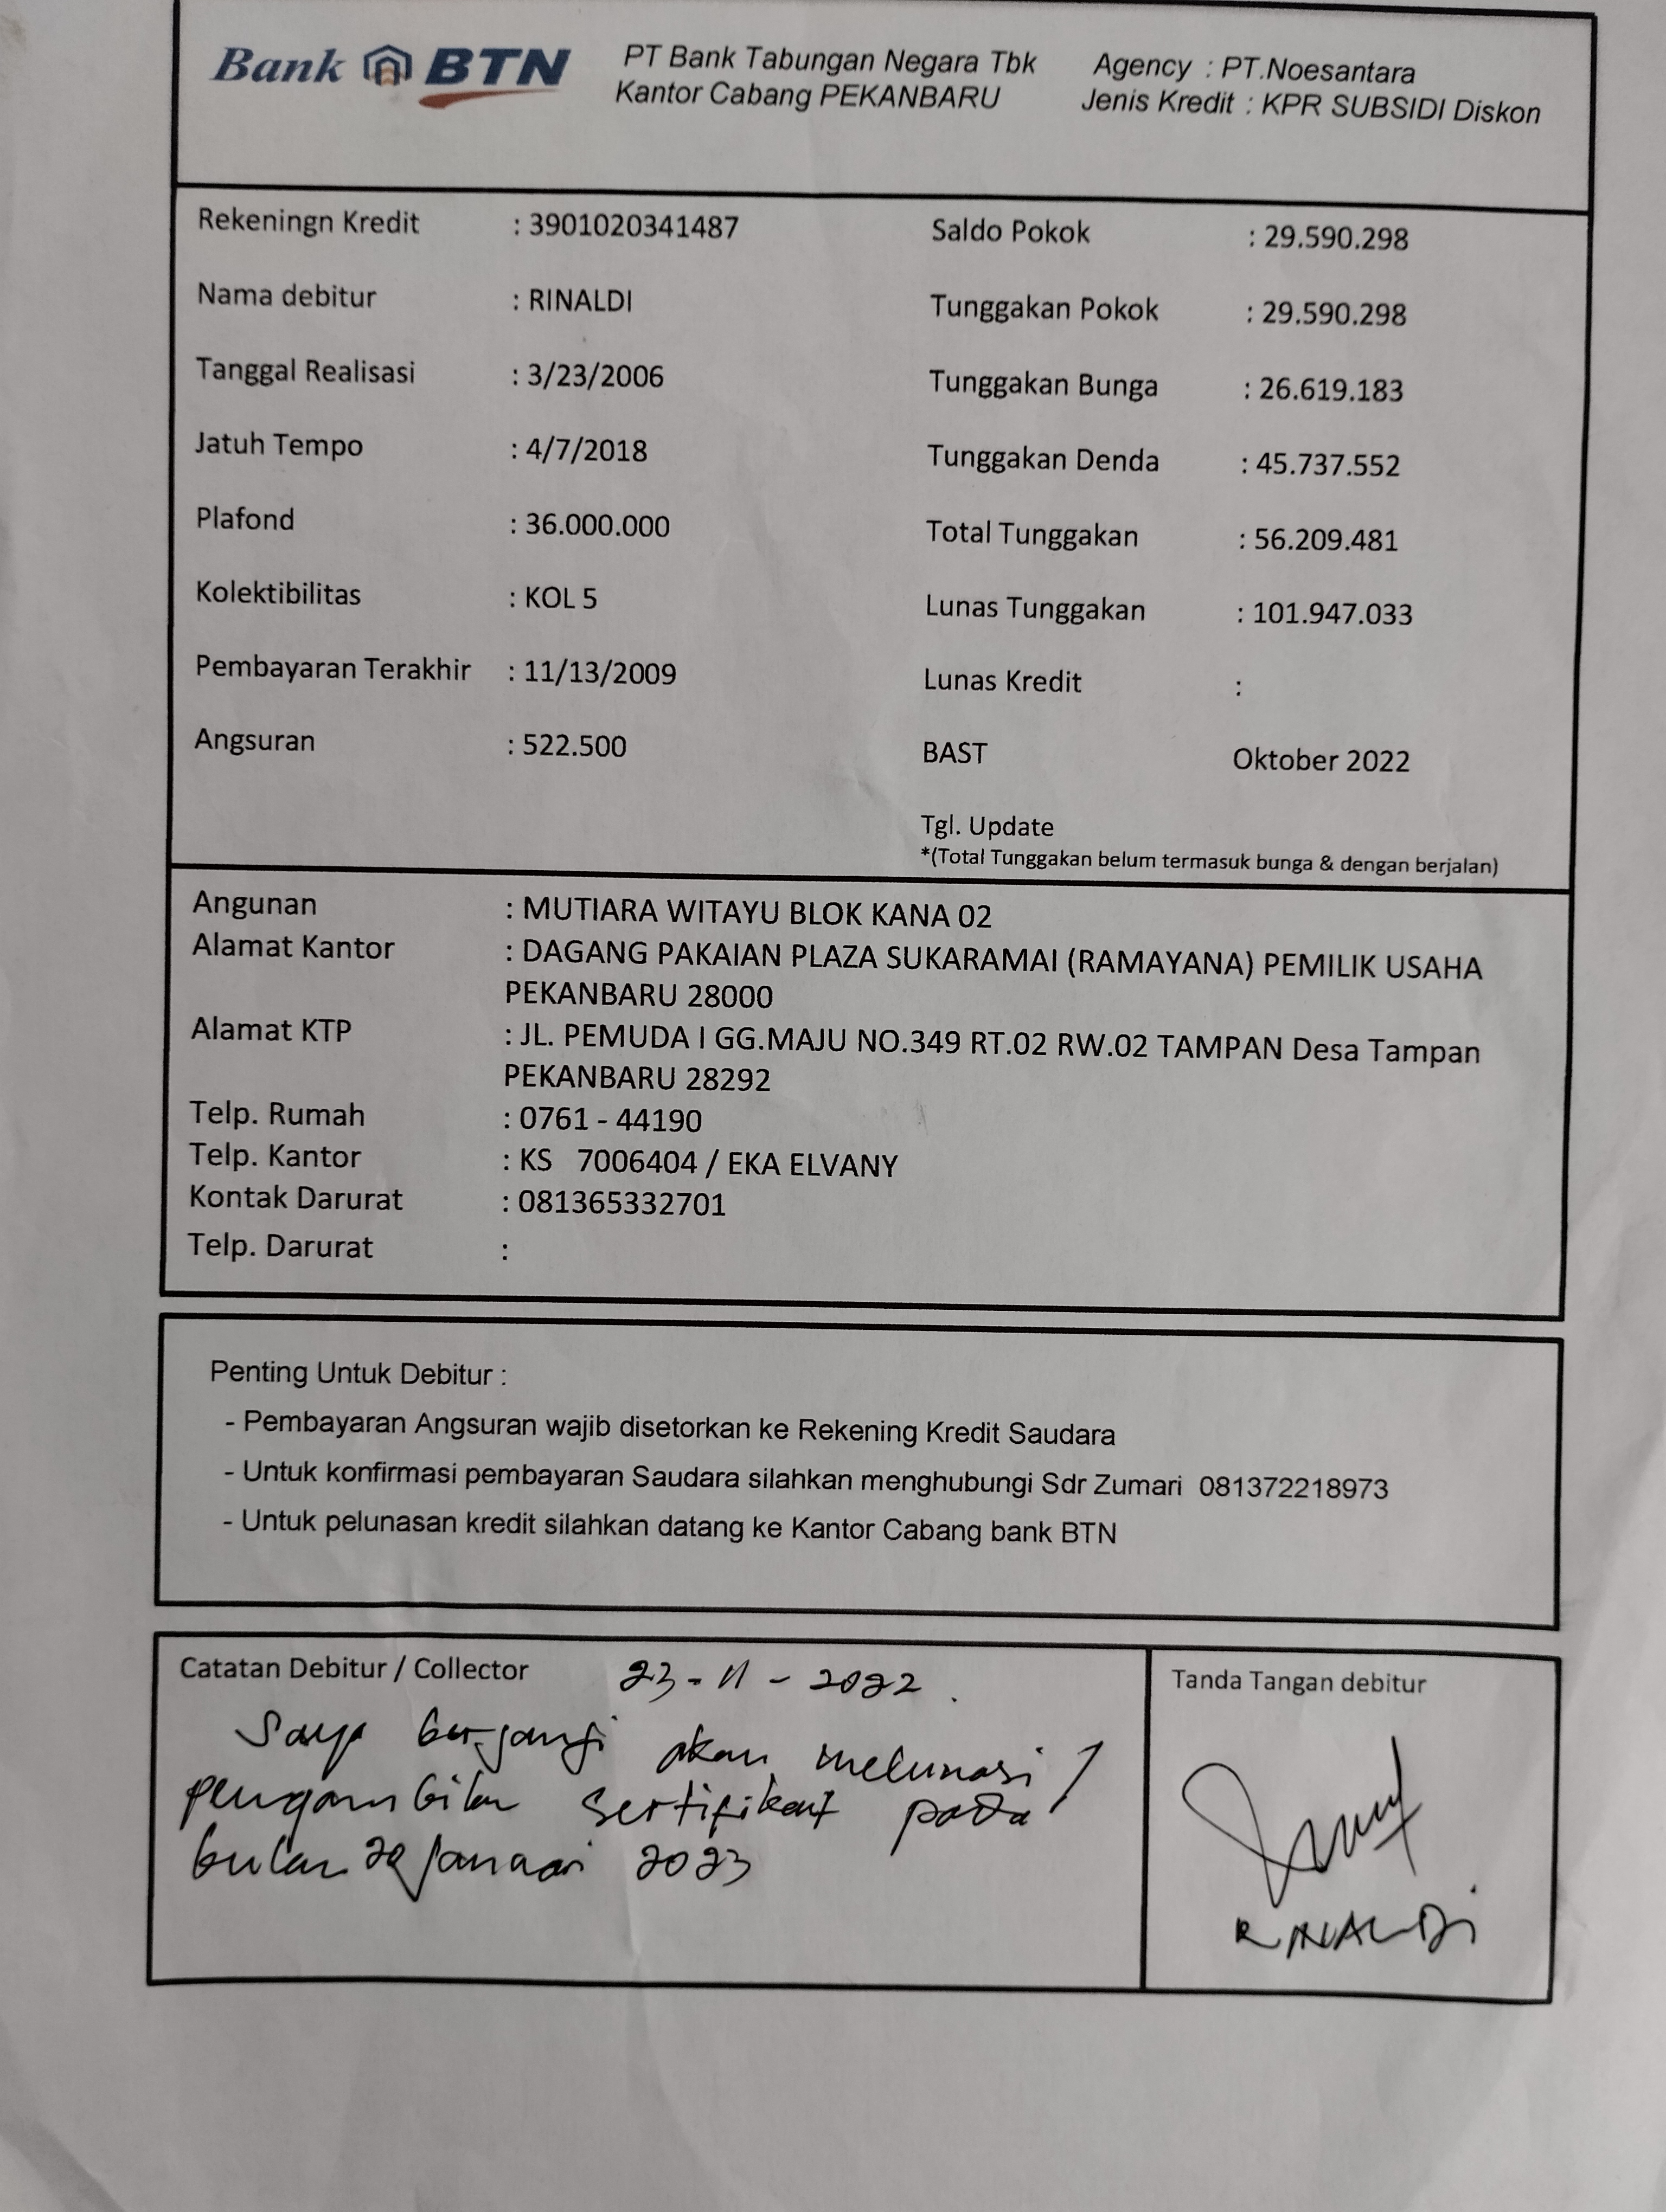 Bank BTN
PT Bank Tabungan Negara Tbk
Kantor Cabang PEKANBARU
Agency : PT.Noesantara
Jenis Kredit : KPR SUBSIDI Diskon
Rekeningn Kredit : 3901020341487
Nama debitur : RINALDI
Tanggal Realisasi : 3/23/2006
Jatuh Tempo : 4/7/2018
Plafond : 36.000.000
Kolektibilitas : KOL 5
Pembayaran Terakhir : 11/13/2009
Angsuran : 522.500
Saldo Pokok : 29.590.298
Tunggakan Pokok : 29.590.298
Tunggakan Bunga : 26.619.183
Tunggakan Denda : 45.737.552
Total Tunggakan : 56.209.481
Lunas Tunggakan : 101.947.033
Lunas Kredit :
BAST Oktober 2022
Tgl. Update
*(Total Tunggakan belum termasuk bunga & dengan berjalan)
Angunan : MUTIARA WITAYU BLOK KANA 02
Alamat Kantor : DAGANG PAKAIAN PLAZA SUKARAMAI (RAMAYANA) PEMILIK USAHA
PEKANBARU 28000
Alamat KTP : JL. PEMUDA I GG.MAJU NO.349 RT.02 RW.02 TAMPAN Desa Tampan
PEKANBARU 28292
Telp. Rumah : 0761 - 44190
Telp. Kantor : KS 7006404 / EKA ELVANY
Kontak Darurat : 081365332701
Telp. Darurat :
Penting Untuk Debitur :
- Pembayaran Angsuran wajib disetorkan ke Rekening Kredit Saudara
- Untuk konfirmasi pembayaran Saudara silahkan menghubungi Sdr Zumari 081372218973
- Untuk pelunasan kredit silahkan datang ke Kantor Cabang bank BTN
Catatan Debitur / Collector 23-11-2022.
Saya berjanji akan melunasi /
pengambilan sertifikat pada
bulan Januari 2023
Tanda Tangan debitur
RINALDI